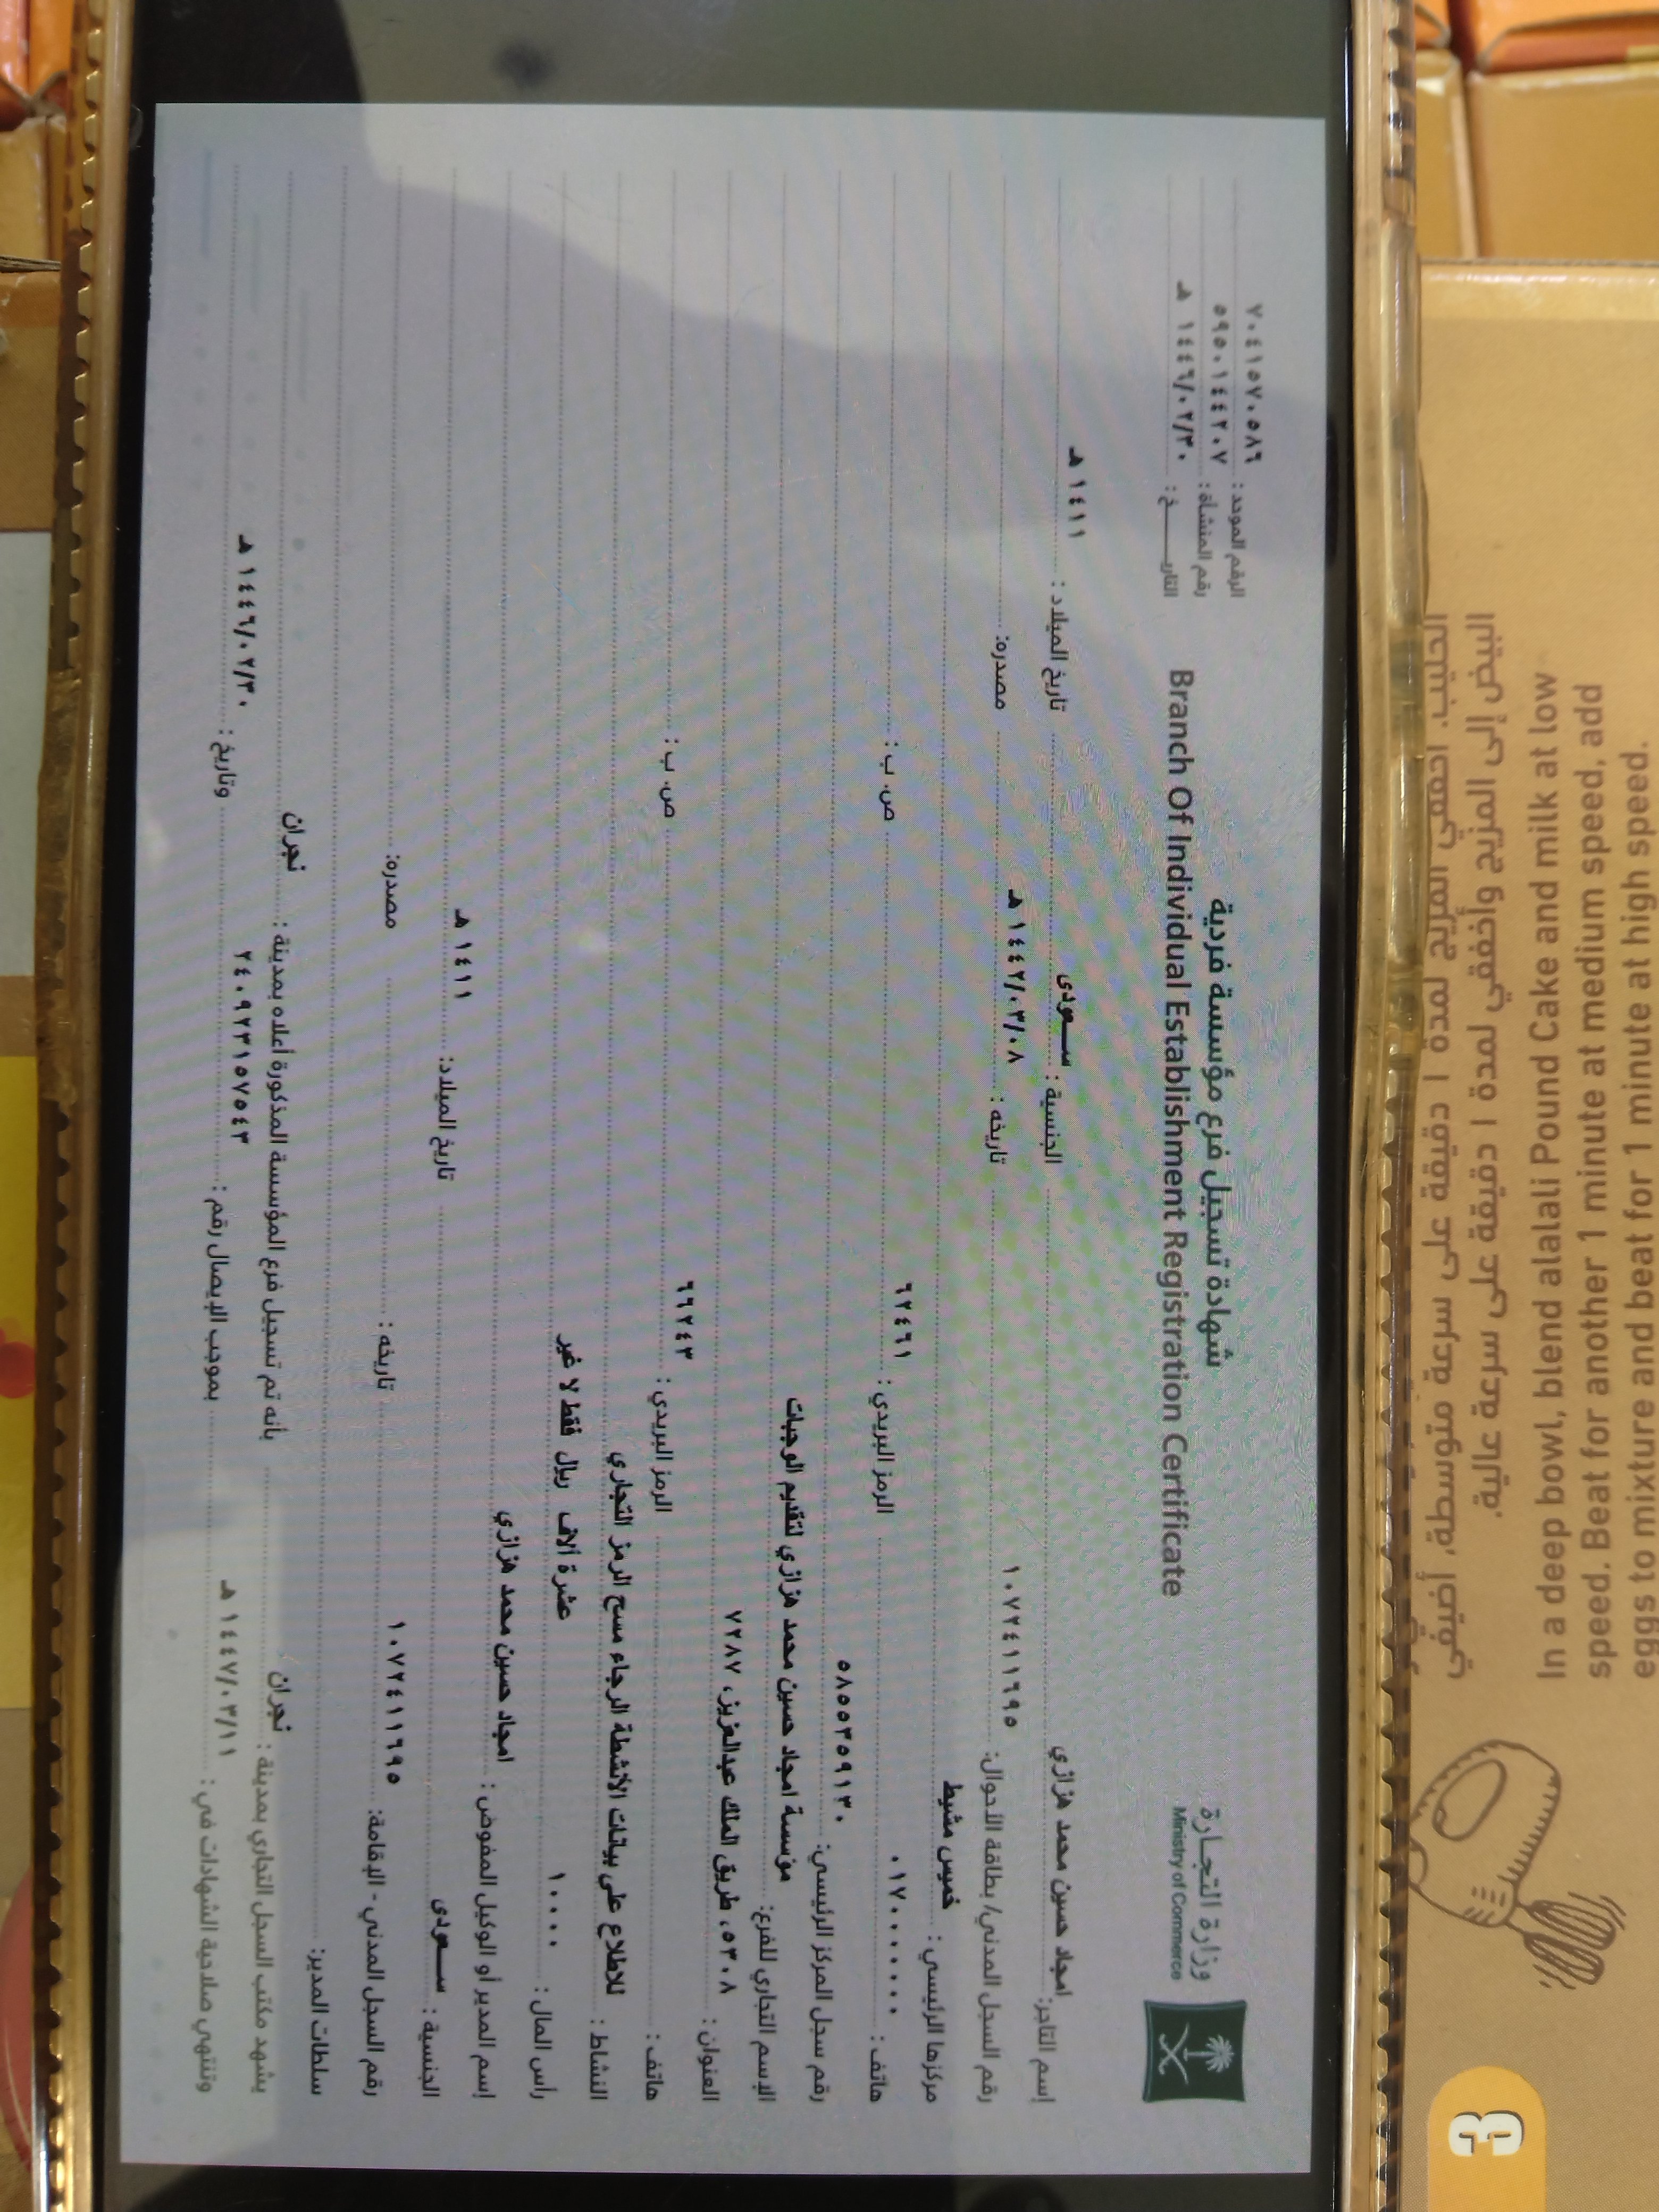 وزارة التجارة
Ministry of Commerce
شهادة تسجيل فرع مؤسسة فردية
Branch Of Individual Establishment Registration Certificate
الرقم الموحد : ٧٠٤١٥٧٠٥٨٦
رقم المنشأة : ٥٩٥٠١٤٤٢٠٧
التاريـــــخ : ١٤٤٦/٠٢/٣٠ هـ
إسم التاجر: امجاد حسين محمد هزازي الجنسية : سـعودى تاريخ الميلاد : ١٤١١ هـ
رقم السجل المدني/ بطاقة الأحوال: ١٠٧٢٤١١٦٩٥ تاريخه : ١٤٤٢/٠٣/٠٨ هـ مصدره:
مركزها الرئيسي : خميس مشيط
هاتف : ٠١٧٠٠٠٠٠٠ الرمز البريدي : ٦٢٤٦١ ص. ب :
رقم سجل المركز الرئيسي: ٥٨٥٥٣٥٩١٣٠
الإسم التجاري للفرع: مؤسسة امجاد حسين محمد هزازي لتقديم الوجبات
العنوان : ٥٣٠٨، طريق الملك عبدالعزيز، ٧٢٨٧
هاتف : الرمز البريدي : ٦٦٢٤٣ ص. ب :
النشاط : للاطلاع على بيانات الأنشطة الرجاء مسح الرمز التجاري
رأس المال : ١٠٠٠٠ عشرة ألاف ريال فقط لا غير
إسم المدير أو الوكيل المفوض : امجاد حسين محمد هزازي
الجنسية : سـعودى تاريخ الميلاد: ١٤١١ هـ
رقم السجل المدني - الإقامة: ١٠٧٢٤١١٦٩٥ تاريخه : مصدره:
سلطات المدير:
يشهد مكتب السجل التجاري بمدينة : نجران بأنه تم تسجيل فرع المؤسسة المذكورة أعلاه بمدينة : نجران
وتنتهي صلاحية الشهادات في : ١٤٤٧/٠٣/١١ هـ بموجب الإيصال رقم : ٢٤٠٩٢٣١٥٧٥٤٣ وتاريخ : ١٤٤٦/٠٢/٣٠ هـ
3
الحليب. اخفقي المزيج لمدة ١ دقيقة على سرعة متوسطة، أضيفي
البيض إلى المزيج وأخفقي لمدة ١ دقيقة على سرعة عالية.
In a deep bowl, blend alalali Pound Cake and milk at low
speed. Beat for another 1 minute at medium speed, add
eggs to mixture and beat for 1 minute at high speed.